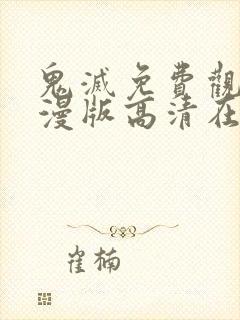 鬼滅免費觀
漫版高清在
崔楠